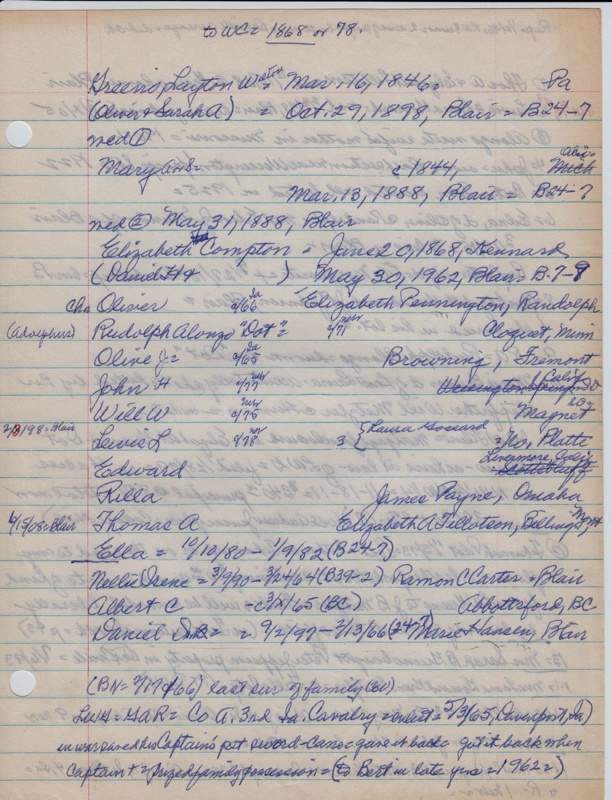 to WC = 1868 or 78.
Greeno, Layton Watson = Mar. 16, 1846 = Pa
(Oliver & Sarah A) = Oct. 29, 1898, Blair = B24-7
med ①
Mary Ann = c 1844, Mich
Mar. 13, 1888, Blair = B24-7
med ② May 31, 1888, Blair
Elizabeth Compton = June 20, 1868, Kennard
(David H & ) May 30, 1962, Blair = B.7-8
chn Oliver c/66 Ia Elizabeth Pennington, Randolph
(Adolphus) Rudolph Alonzo "Dot" = c/71 nebr Cloquet, Minn
Olive J = c/65 Ia Browning, Fremont
John H c/77 nebr Calif
Will W c/75 nebr Magnet
2/3/98 = Blair Lewis L c/78 nebr 3 { Laura Gossard = No. Platte
Edward Livermore, Calif
Rilla James Payne, Omaha
6/15/08 = Blair Thomas A Elizabeth A Tillotson, Bellingham
Ella = 10/10/80 - 1/9/82 (B24-7)
Nellie Irene = 3/9/90 - 3/24/64 (B39-2) Ramon C Carter = Blair
Albert C - c 3/ /65 (BC) Abbottsford, BC
Daniel = 9/2/97 - 2/13/66 (24-7) Marie Hansen, Blair
(BN = 2/17/66) last sur of family
GAR = Co A, 3rd Ia. Cavalry = enlist = 5/3/65, Davenport, Ia)
in war saved his Captain's pet sword-cane & gave it back & got it back when
Captain + = prized family possession = (to Bert in late yrs = 1962 =)